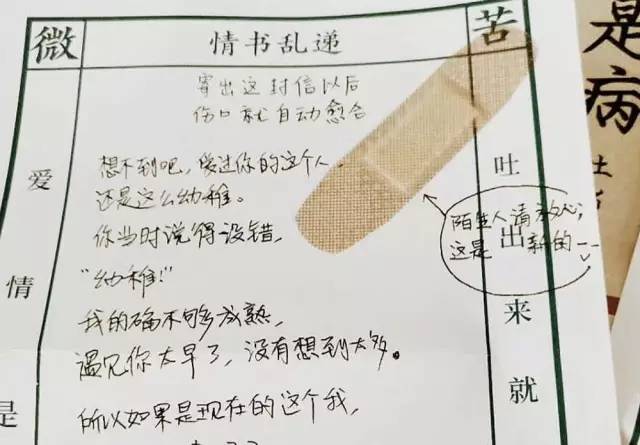 微
情书乱递
苦
寄出这封信以后
伤口就自动愈合
想不到吧，傻过你的这个人
还是这么幼稚。
你当时说得没错，
“幼稚！”
我的确不够成熟，
遇见你太早了，没有想到太多。
所以如果是现在的这个我，
陌生人请放心；
这是新的~~
爱
情
是
吐
出
来
就
是
病